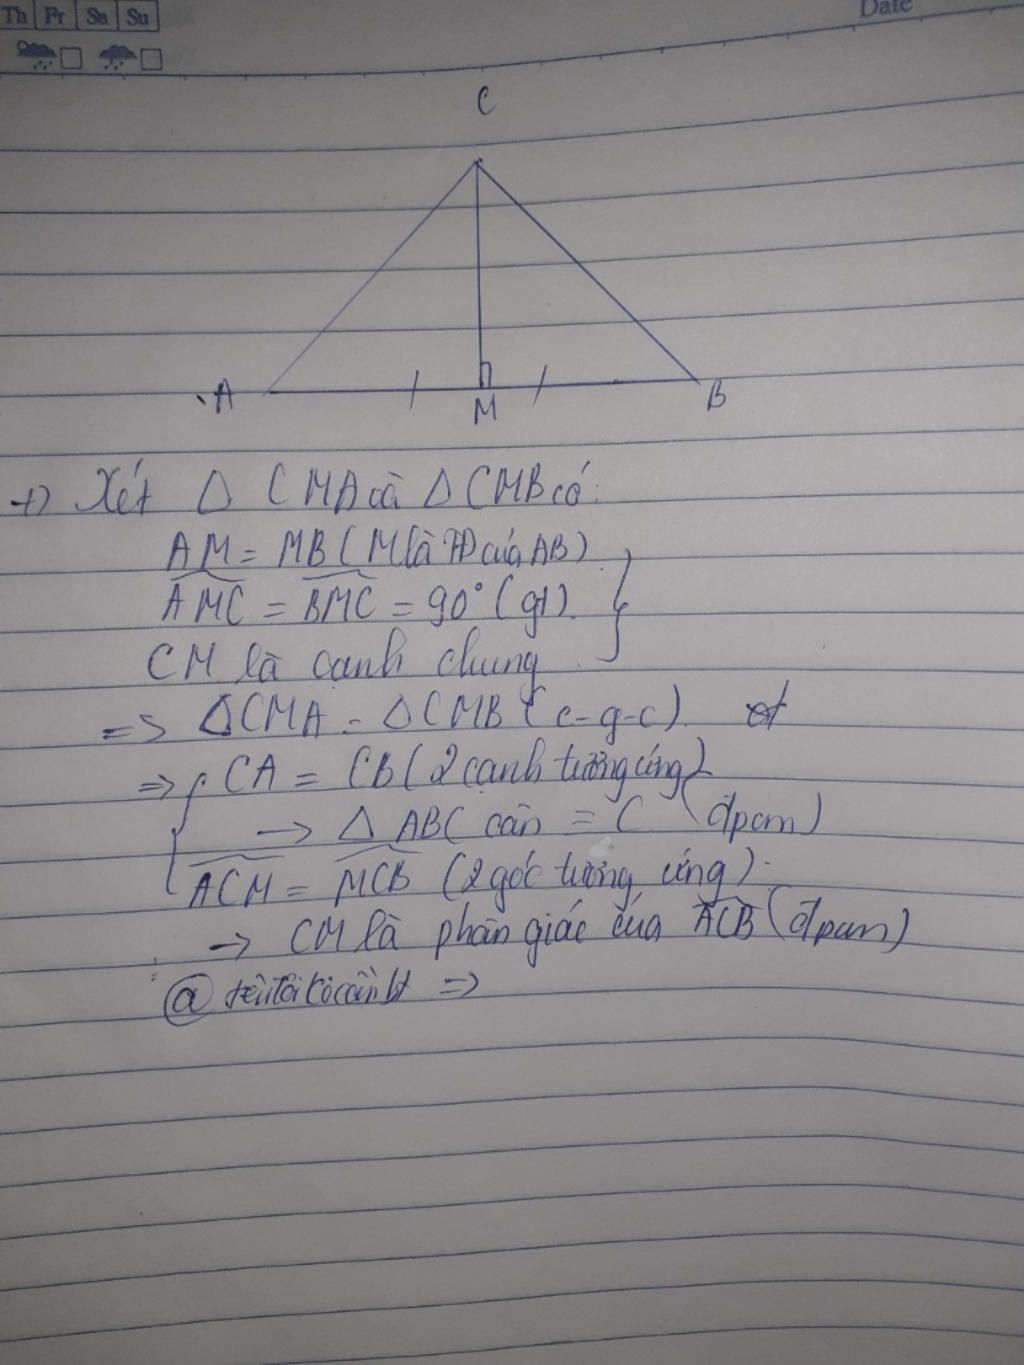 Th Fr Sa Su
Date
C
A
M
B
+) Xét Δ CMA và Δ CMB có:
AM = MB (M là TĐ của AB)
AMC = BMC = 90° (gt).
CM là cạnh chung
=> ΔCMA = ΔCMB (c-g-c).
=> CA = CB (2 cạnh tương ứng)
→ Δ ABC cân = C (đpcm)
ACM = MCB (2 góc tương ứng).
→ CM là phân giác của ACB (đpcm)
@ =>